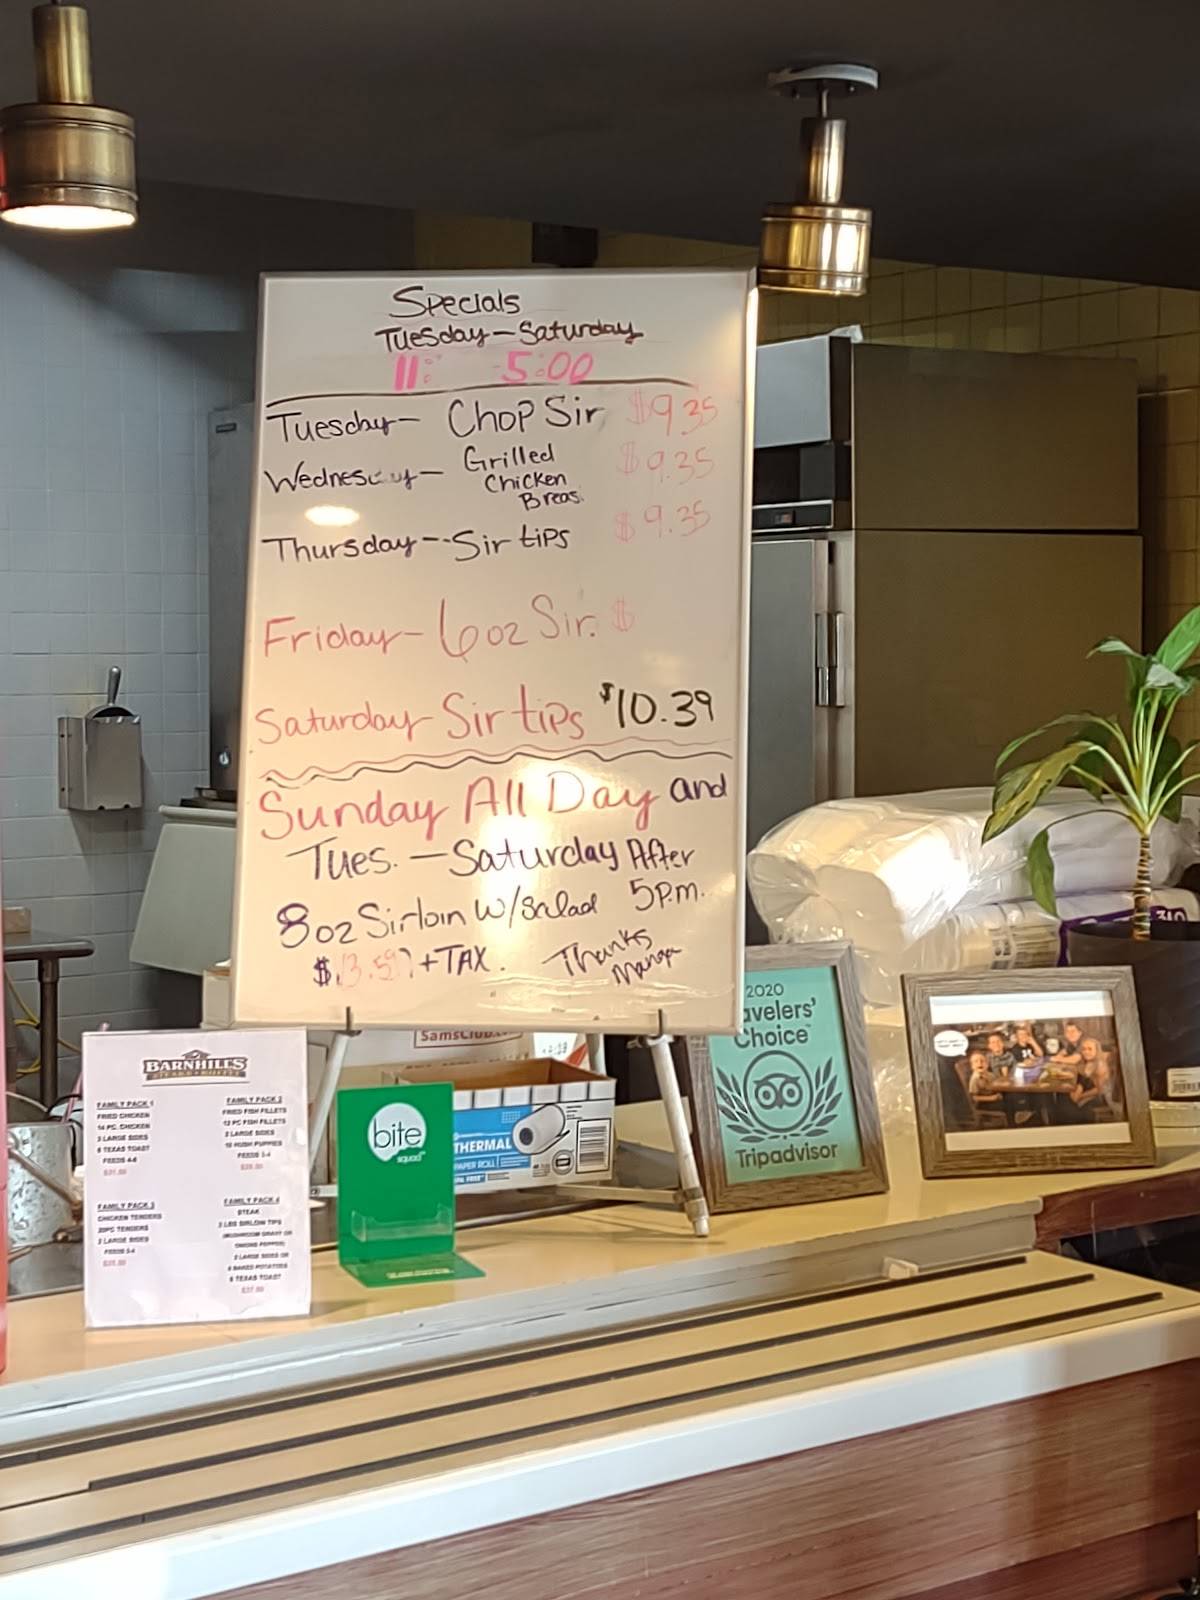 Specials
Tuesday-Saturday
11: 5:00
Tuesday- Chop Sir $9.35
Wednesday- Grilled Chicken Breas $9.35
Thursday-- Sir tips $9.35
Friday- 6oz Sir. $
Saturday Sir tips $10.39
Sunday All Day and
Tues. - Saturday After 5p.m.
8oz Sirloin w/salad
+TAX.
Thanks
Manager
BARNHILL'S
FAMILY PACK 1
FRIED CHICKEN
14 PC. CHICKEN
3 LARGE SIDES
6 TEXAS TOAST
FEEDS 4-6
FAMILY PACK 2
FRIED FISH FILLETS
12 PC FISH FILLETS
2 LARGE SIDES
10 HUSH PUPPIES
FEEDS 3-4
FAMILY PACK 3
CHICKEN TENDERS
20PC TENDERS
2 LARGE SIDES
FEEDS 3-4
FAMILY PACK 4
STEAK
2 LBS SIRLOIN TIPS
2 LARGE SIDES OR
4 BAKED POTATOES
6 TEXAS TOAST
bite
squad
SamsClub
THERMAL
PAPER ROLL
BPA FREE
2020
avelers'
Choice
Tripadvisor
310